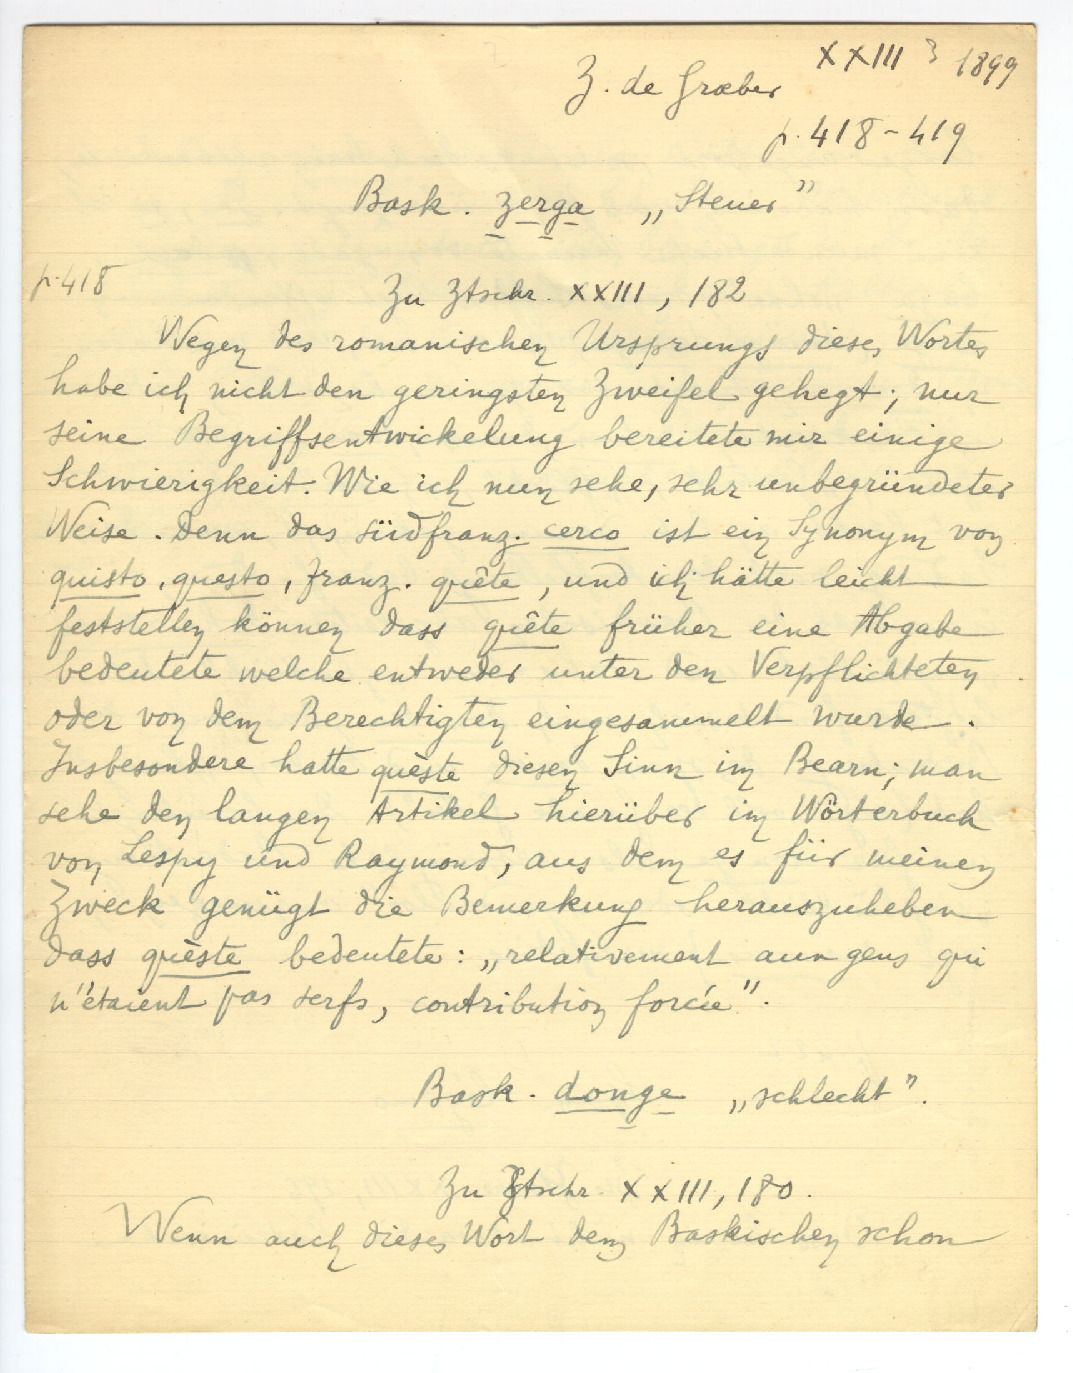 XXIII 3 1899
Z. de Grœber
p. 418-419
Bask. zerga „Steuer”
p. 418
Zu Ztschr. XXIII, 182
Wegen des romanischen Ursprungs dieses Wortes
habe ich nicht den geringsten Zweifel gehegt; nur
seine Begriffsentwickelung bereitete mir einige
Schwierigkeit. Wie ich nun sehe, sehr unbegründeter
Weise. Denn das südfranz. cerco ist ein Synonym von
quisto, questo, franz. quête, und ich hätte leicht
feststellen können dass quête früher eine Abgabe
bedeutete welche entweder unter den Verpflichteten
oder von dem Berechtigten eingesammelt wurde.
Insbesondere hatte quèste diesen Sinn im Bearn; man
sehe den langen Artikel hierüber im Wörterbuch
von Lespy und Raymond, aus dem es für meinen
Zweck genügt die Bemerkung herauszuheben
dass quèste bedeutete: „relativement aux gens qui
n'étaient pas serfs, contribution forcée”.
Bask. donge „schlecht”.
Zu Ztschr. XXIII, 180.
Wenn auch dieses Wort dem Baskischen schon